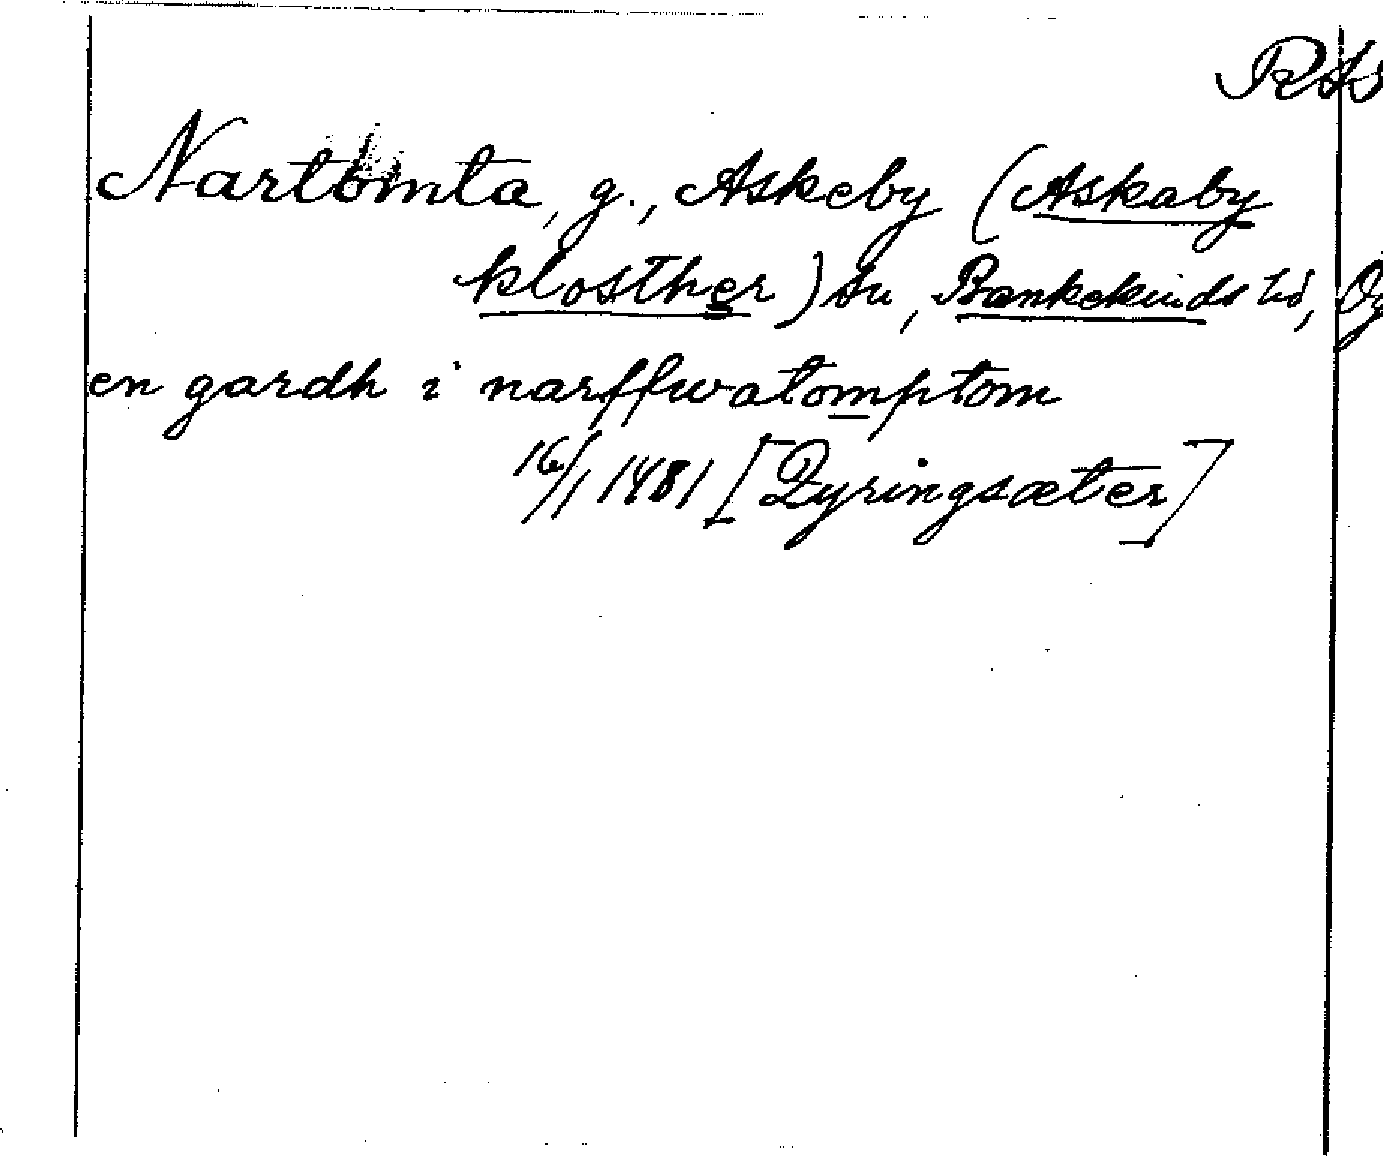 RA
Nartomta, g., Askeby (Askaby
klosther) sn, Bankekinds hd, Ög
en gardh i narffwatomptom
16/1 1481 [Dyringsæter]